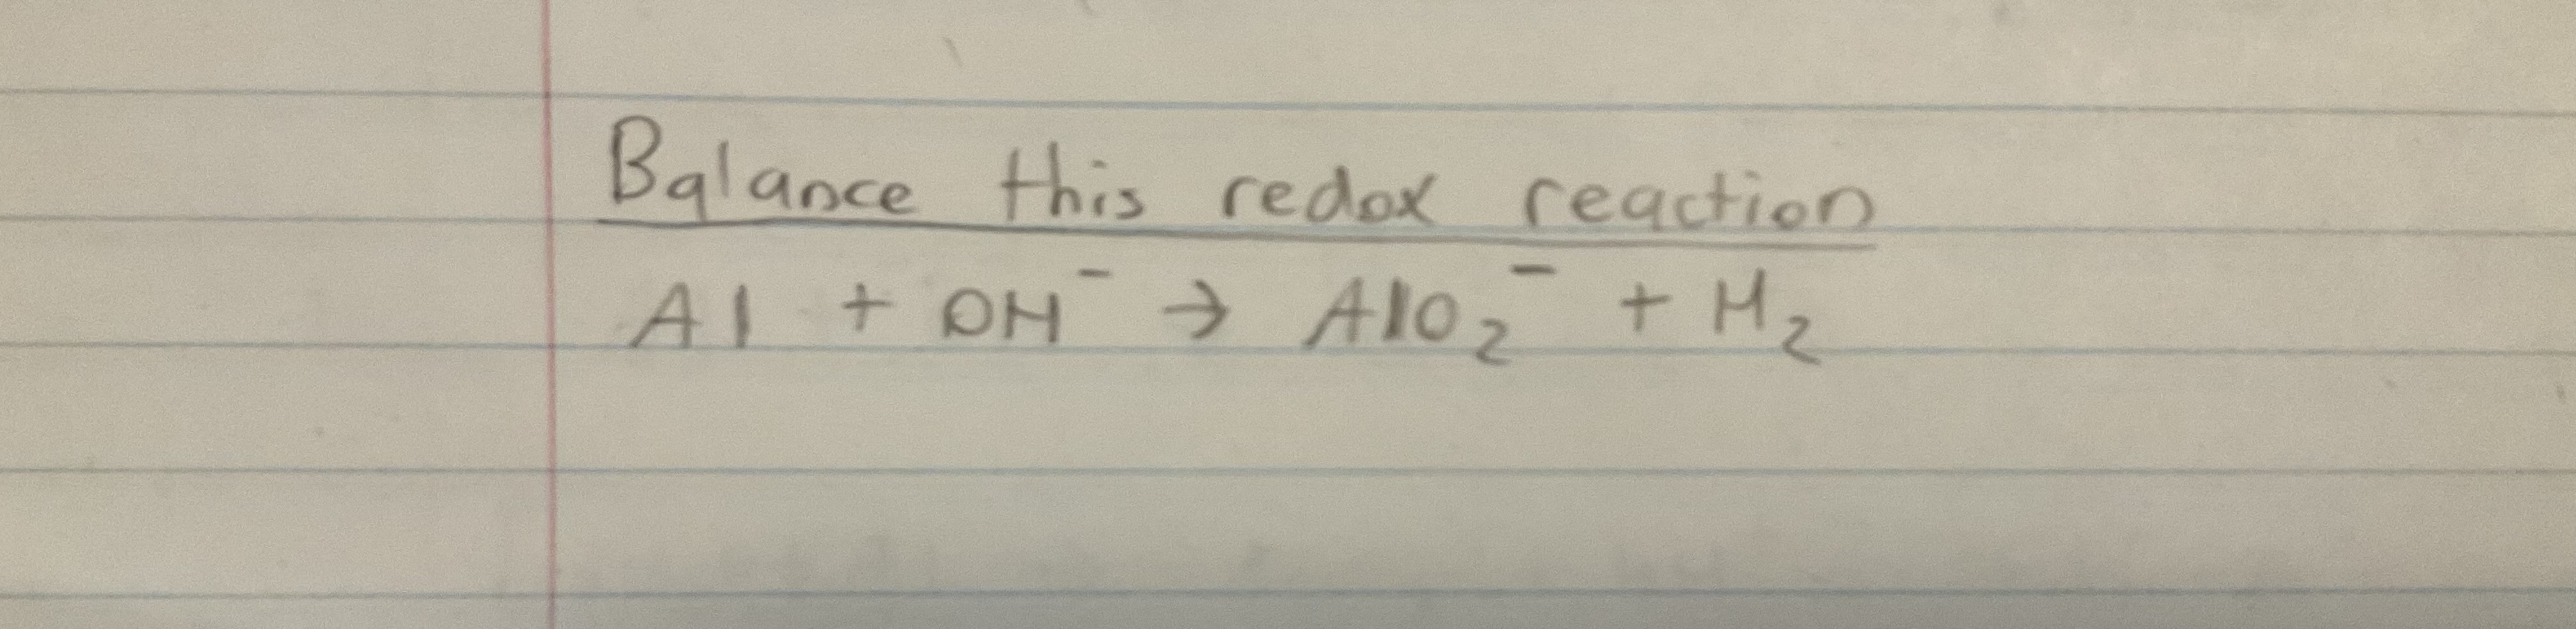 Balance this redox reaction
Al + OH⁻ → AlO₂⁻ + H₂